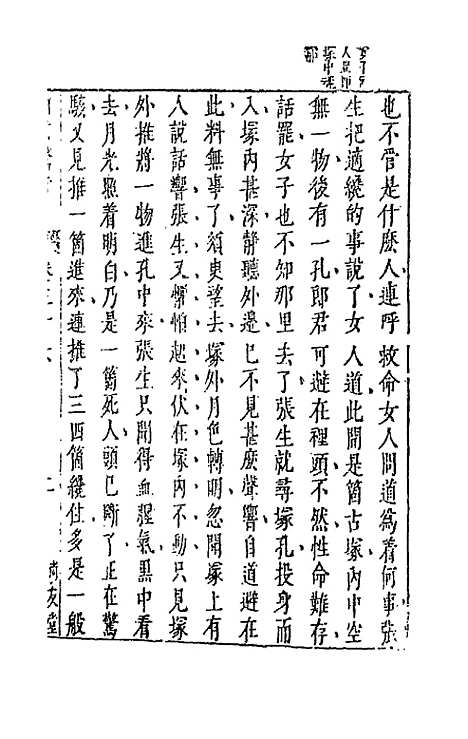 也不管是什麽人連呼救命女人問道爲着何事張
生把適纔的事說了女人道此間是箇古塚內中空
無一物後有一孔郎君可避在裡頭不然性命難存
話罷女子也不知那里去了張生就尋塚孔投身而
入塚內甚深靜聽外邊已不見甚麽聲響自道避在
此料無事了須臾望去塚外月色轉明忽聞塚上有
人說話響張生又懼怕起來伏在塚內不動只見塚
外推將一物進孔中來張生只聞得血腥氣黑中看
去月光照着明白乃是一箇死人頭已斷了正在驚
駭又見推一箇進來連推了三四箇纔住多是一般
卷三十六
尚友堂